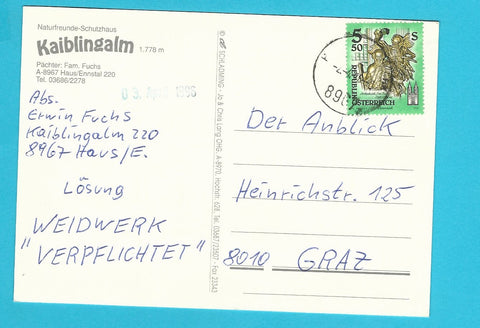 Naturfreunde-Schutzhaus
Kaiblingalm 1.778 m
Pächter: Fam. Fuchs
A-8967 Haus/Ennstal 220
Tel. 03686/2278
Abs.
Erwin Fuchs
Kaiblingalm 220
8967 Haus/E.
Lösung
WEIDWERK
"VERPFLICHTET"
SCHLADMING - Jo & Chris Lang OHG, A-8970, Hochstr. 628, Tel. 03687/23507 - Fax 23343
5 50
S
REPUBLIK
ÖSTERREICH
896
Der Anblick
Heinrichstr. 125
8010 GRAZ